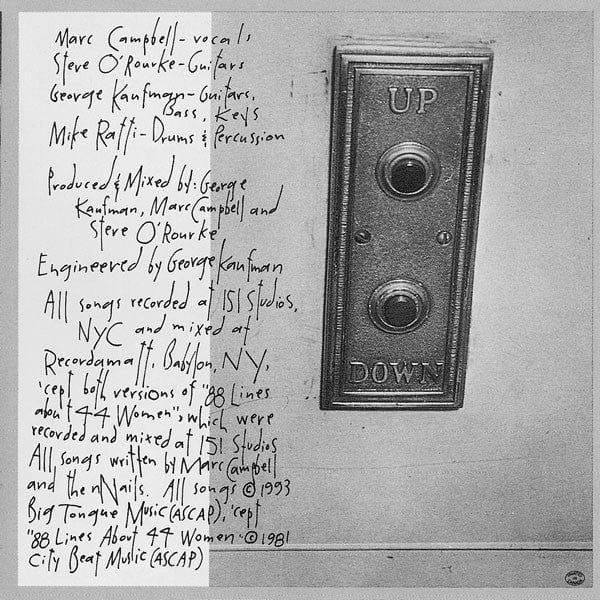 Marc Campbell - vocals
Steve O'Rourke - Guitars
George Kaufman - Guitars,
Bass, Keys
Mike Ratti - Drums & Percussion
Produced & Mixed by: George
Kaufman, Marc Campbell and
Steve O'Rourke
Engineered by George Kaufman
All songs recorded at 151 Studios,
NYC and mixed at
Recordamatt, Babylon, NY,
'cept both versions of "88 Lines
about 44 Women", which were
recorded and mixed at 151 Studios
All songs written by Marc Campbell
and the Nails. All songs © 1993
Big Tongue Music (ASCAP), 'cept
"88 Lines About 44 Women" © 1981
City Beat Music (ASCAP)
UP
DOWN